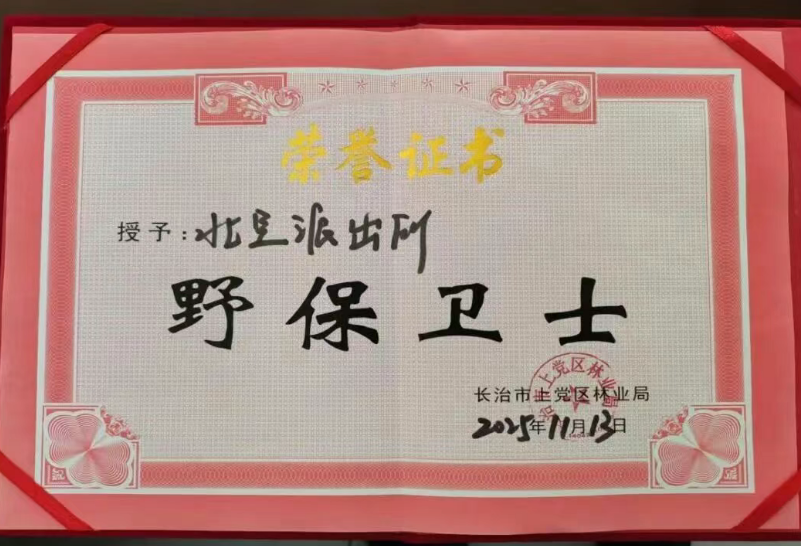 荣誉证书
授予：北呈派出所
野保卫士
长治市上党区林业局
2025年11月13日
长治市上党区林业局